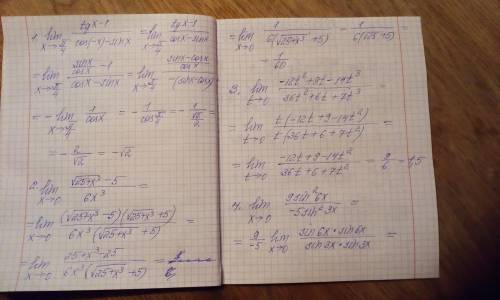 1. lim x→π/4 (tgx-1)/(cos(-x)-sinx) = lim x→π/4 (tgx-1)/(cosx-sinx) =
= lim x→π/4 (sinx/cosx -1)/(cosx-sinx) = lim x→π/4 ((sinx-cosx)/cosx)/(-(sinx-cosx))
= - lim x→π/4 1/cosx = - 1/cos π/4 = - 1/(√2/2) =
= - 2/√2 = -√2
2. lim x→0 (√(25+x³) -5)/(6x³) =
= lim x→0 ((√(25+x³) -5)(√(25+x³) +5))/(6x³(√(25+x³) +5)) =
= lim x→0 (25+x³-25)/(6x³(√(25+x³) +5)) =
= lim x→0 1/(6(√(25+x³) +5)) = 1/(6(√25 +5)) =
= 1/60
3. lim t→0 (-12t²+9t-14t³)/(36t²+6t+7t³) =
= lim t→0 (t(-12t+9-14t²))/(t(36t+6+7t²)) =
= lim t→0 (-12t+9-14t²)/(36t+6+7t²) = 9/6 = 1,5
4. lim x→0 (9sin²6x)/(-5sin²3x) =
= 9/-5 lim x→0 (sin6x·sin6x)/(sin3x·sin3x) =